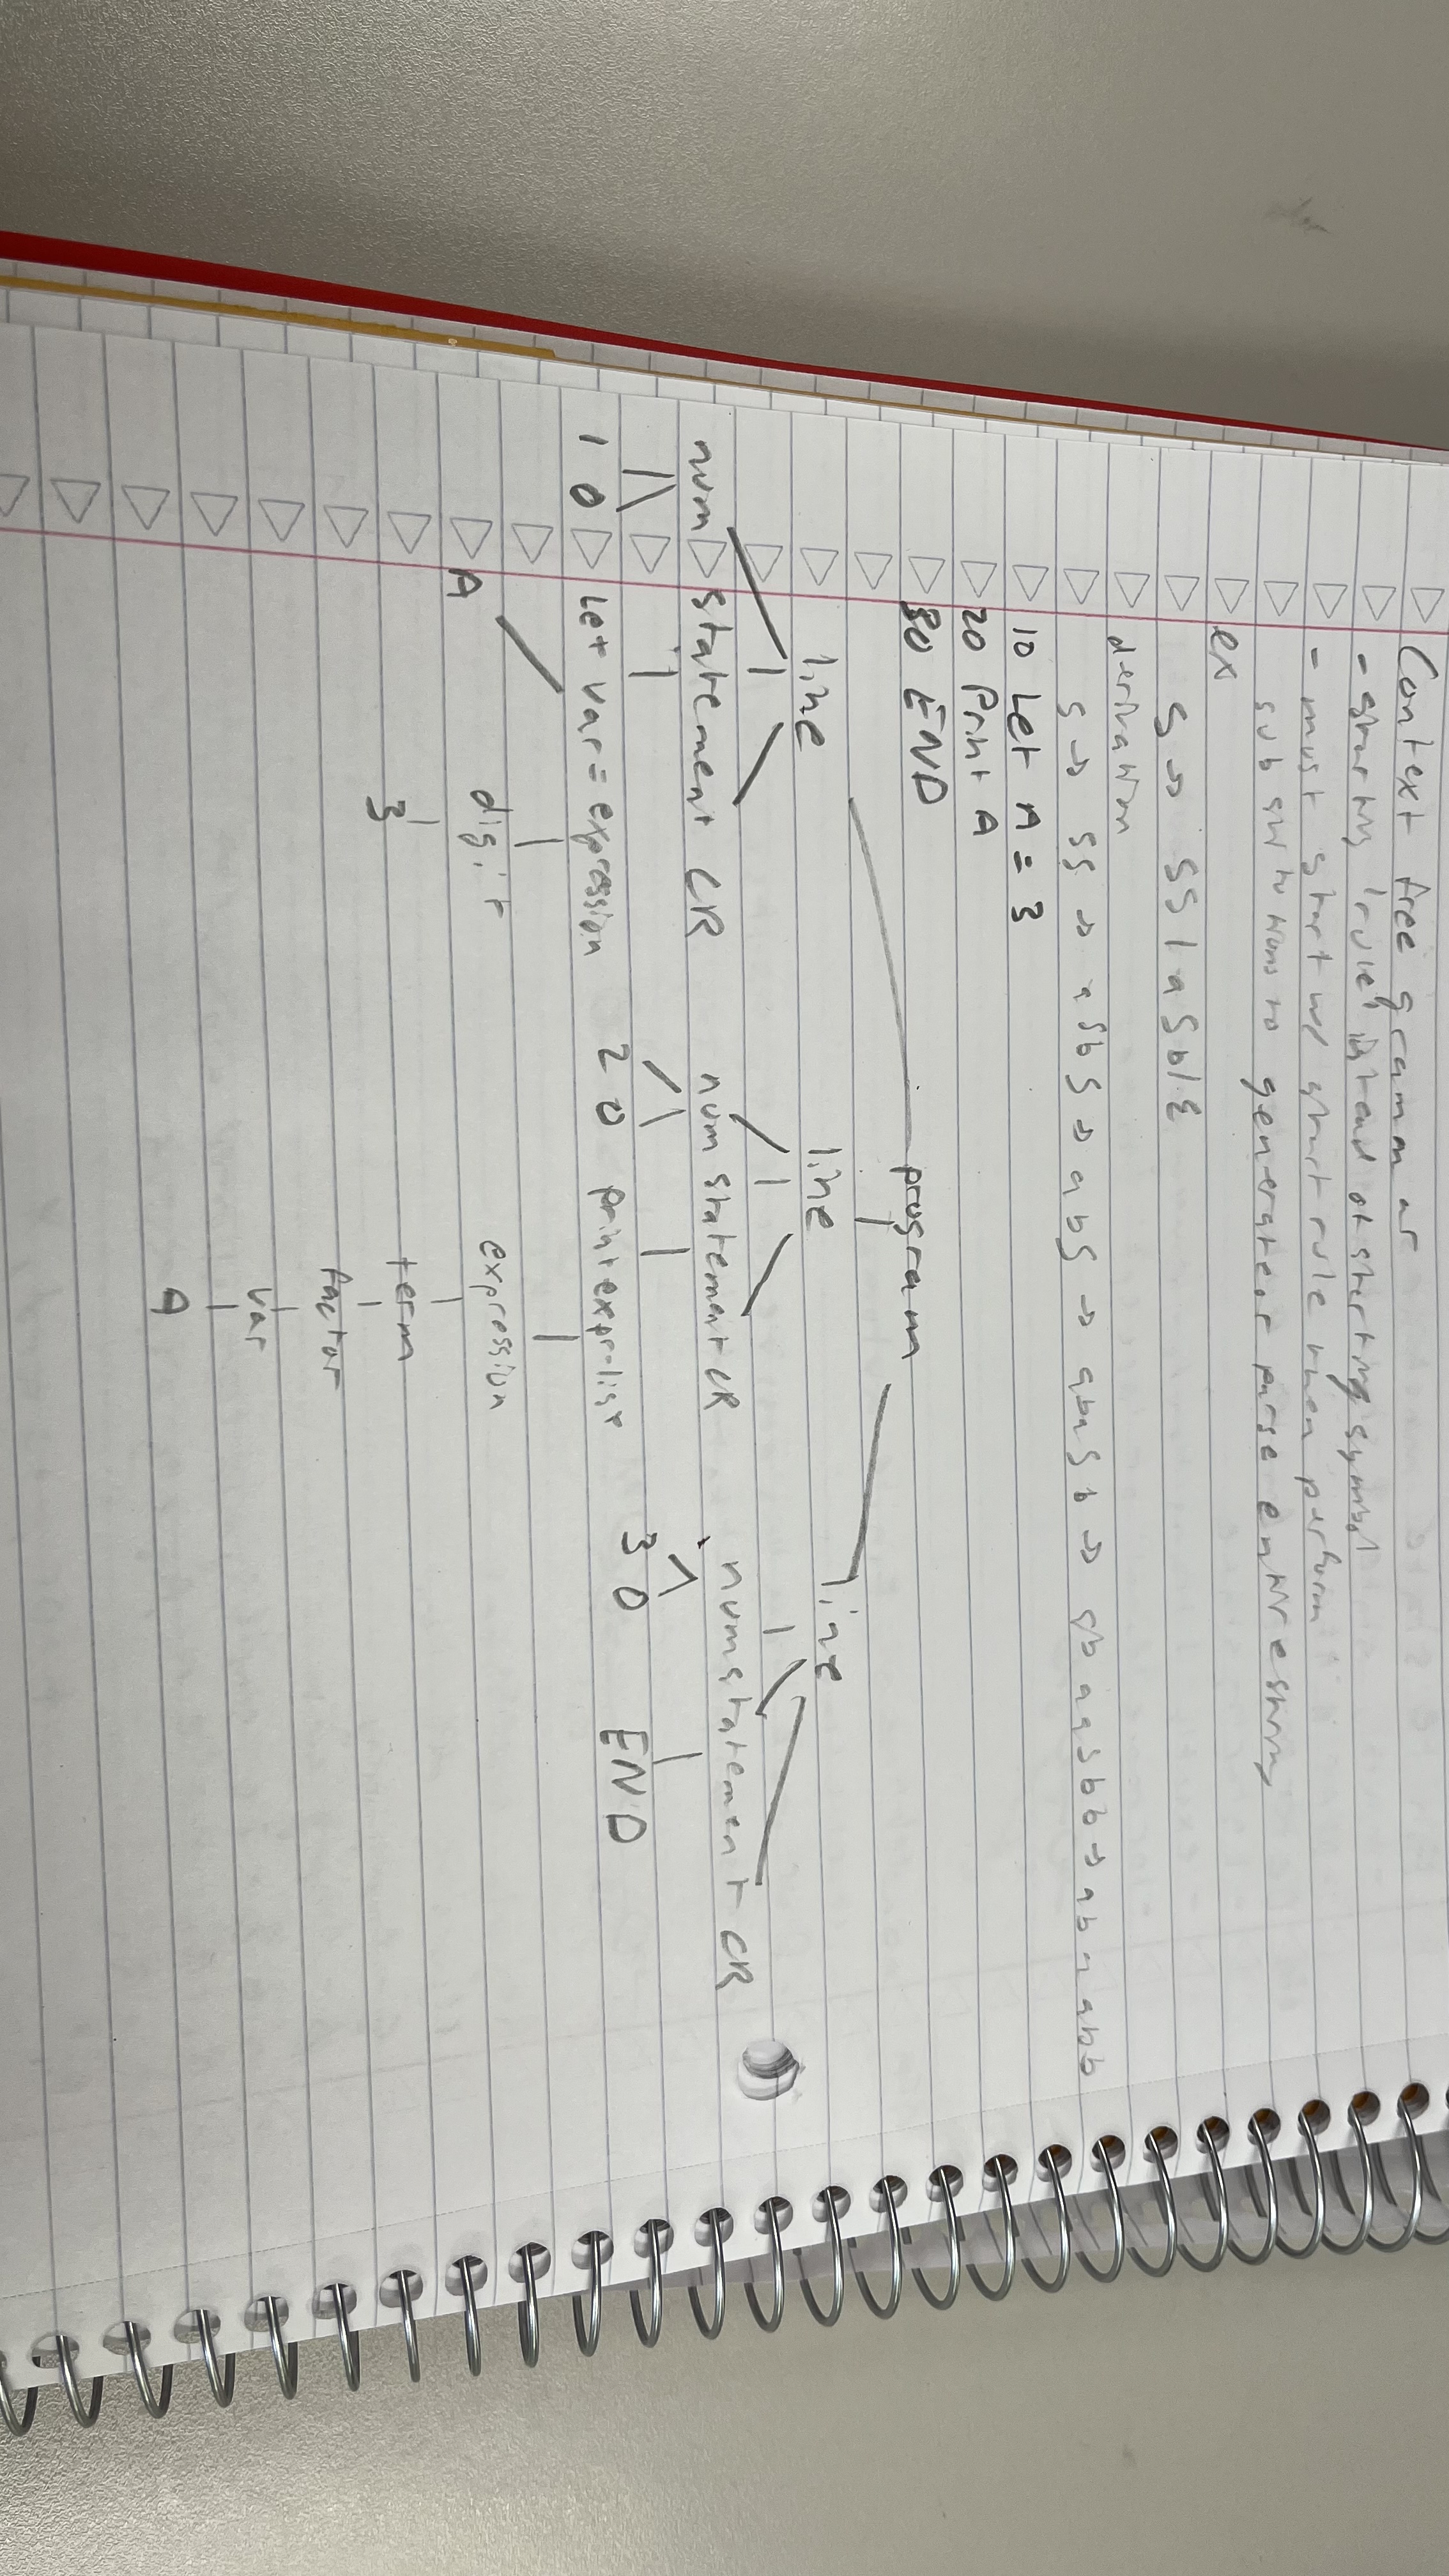 Context free grammar
- starting "rule" instead of starting symbol
- must start w/ start rule then perform
substitutions to generate or parse entire string
ex
S → SS | aSb | ε
derivation
S → SS → aSbS → abS → abaSb → abaaSbb → abaabb
10 Let A = 3
20 Print A
30 END
program
line line line
num statement CR num statement CR num statement CR
1 0 Let var = expression 2 0 print expr-list 3 0 END
A digit expression
3 term
factor
var
A